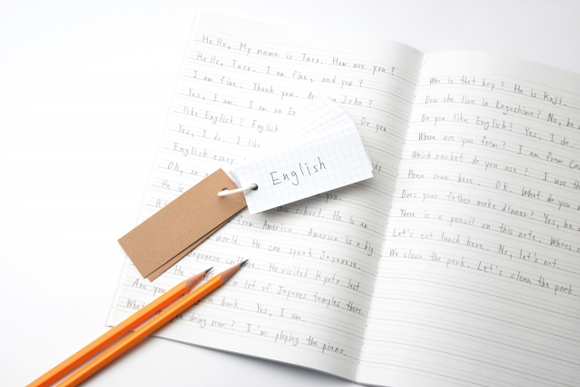 Hello, My name is Taro. How are you?
Hello, Taro. I am fine, and you?
I am fine. Thank you. John?
Yes, I am. I am an En Do you
like English? English
Yes, I do. I like
English every
Oh, so
He is
school. He is an
from America. America is a big
world. He can speak Japanese.
Japanese He visited Kyoto last
Are you a lot of Japanes temples there.
book. Yes, I am.
What being now? I'm playing the piano.
English
Who is that boy? He is Koji.
Does she live in Kagoshima? No, he
Do you like English? Yes, I do.
Where are you from? I am from Can
Which racket do you use? I use th
Please come here. O.K. What do you
Does your father make dinner? Yes, he
There is a pencil on this note. Whose
Let's eat lunch here. No, let's not
We clean the park. Let's clean the park